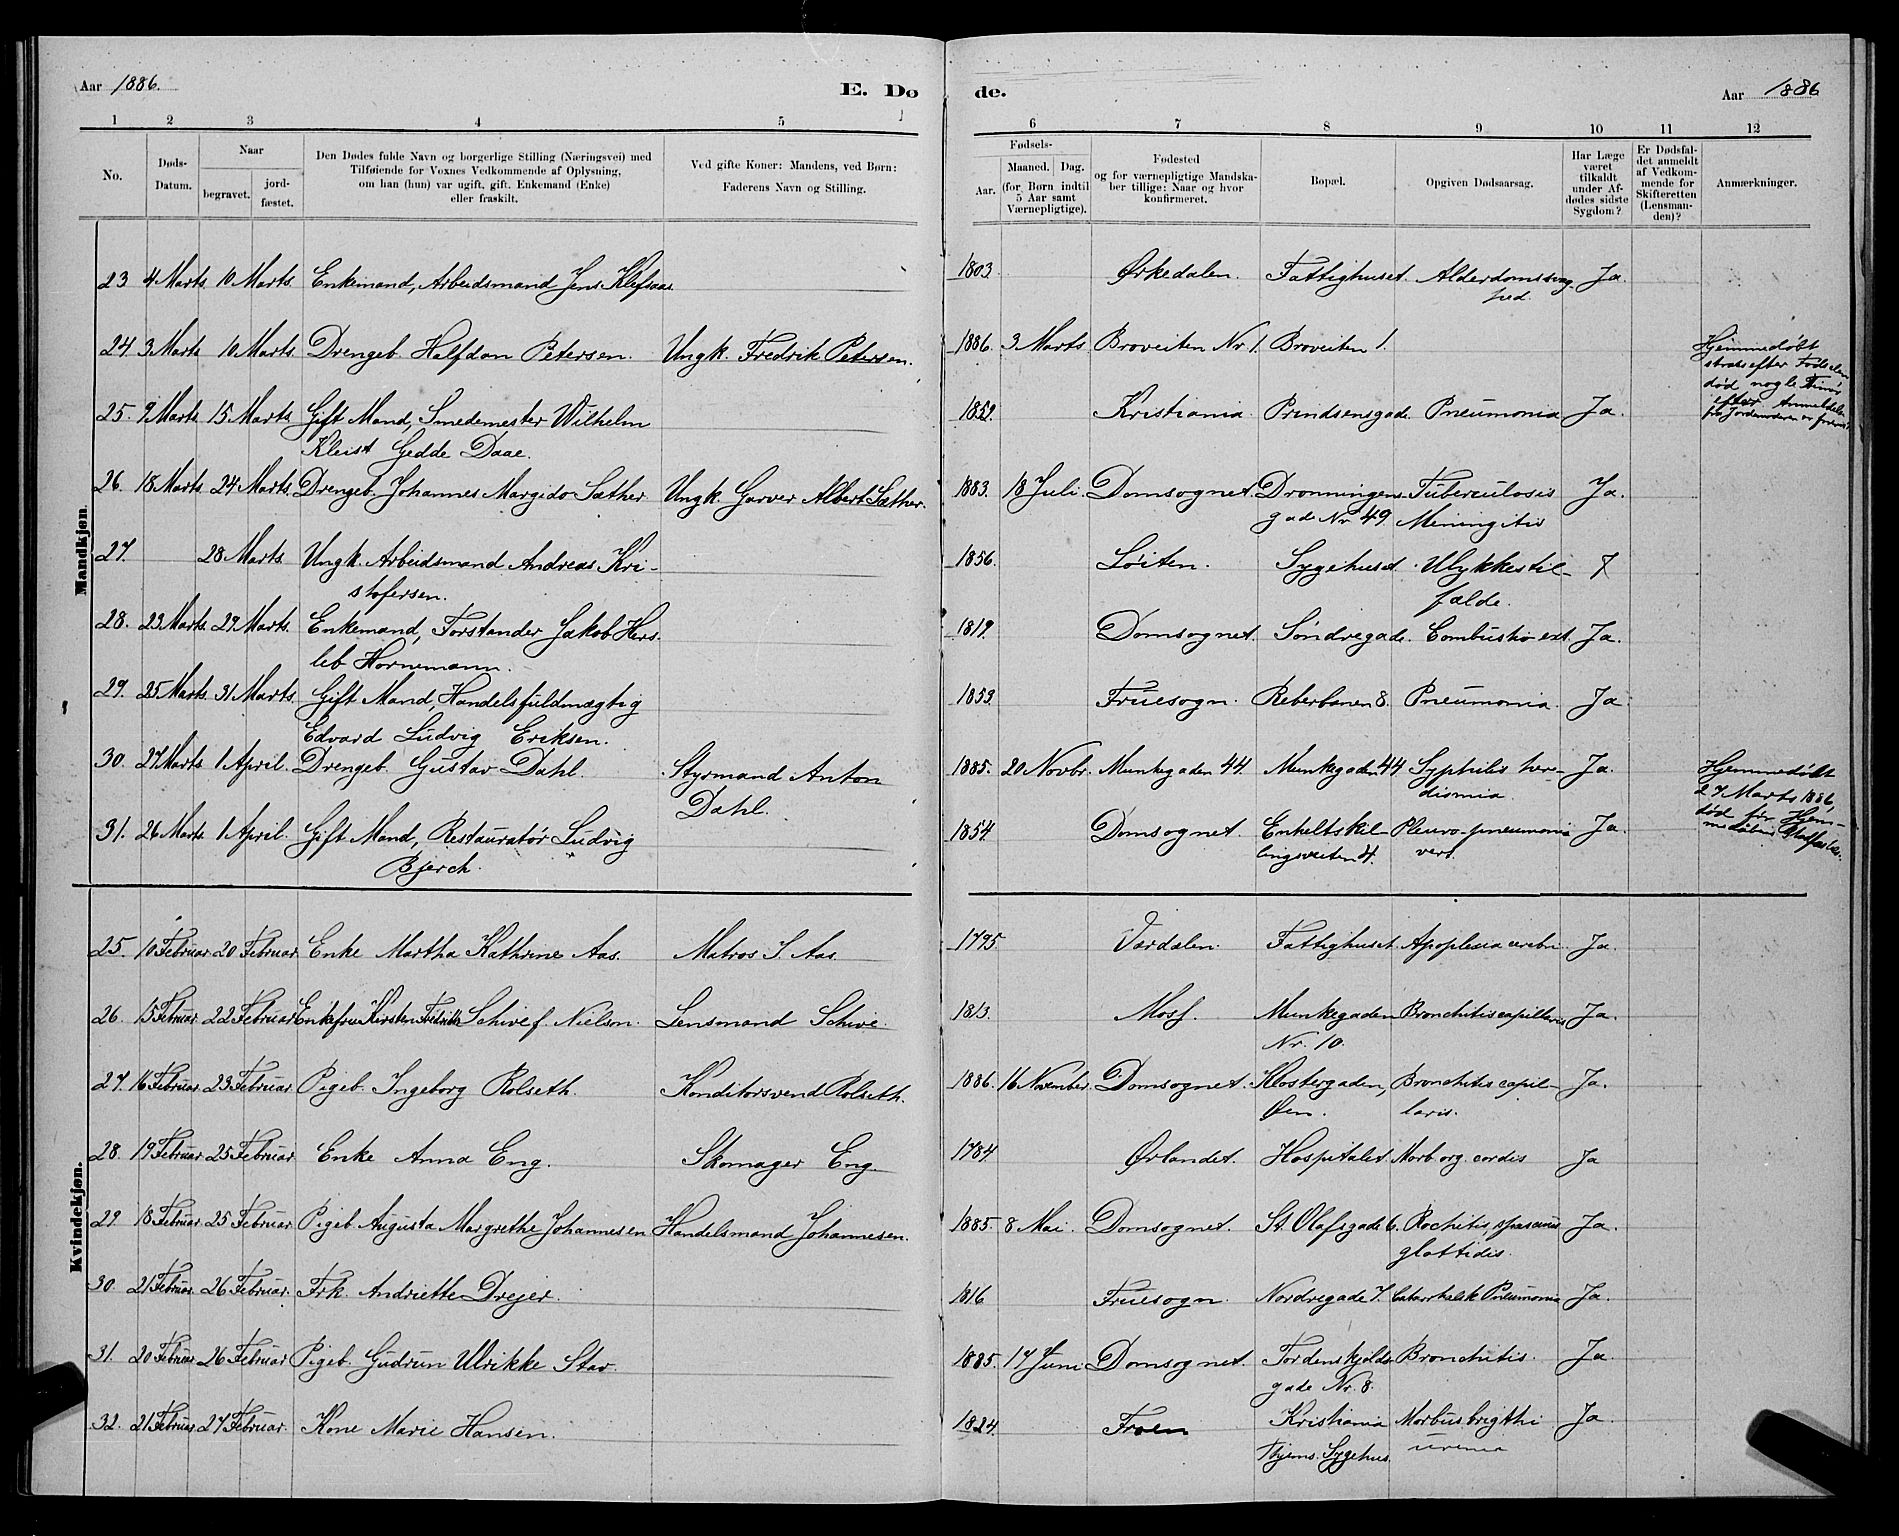 Aar 1886.
E. Dø
de.
Aar 1886
1 2 3 4 5
6 7 8 9 10 11 12
No.
Døds-Datum.
Naar
begravet.
jord-fæstet.
Den Dødes fulde Navn og borgerlige Stilling (Næringsvei) med
Tilføiende for Voxnes Vedkommende af Oplysning,
om han (hun) var ugift, gift, Enkemand (Enke)
eller fraskilt.
Ved gifte Koner: Mandens, ved Børn:
Faderens Navn og Stilling.
Fødsels-
Aar.
Maaned. Dag.
(for Børn indtil
5 Aar samt
Værnepligtige).
Fødested
og for værnepligtige Mandska-
ber tillige: Naar og hvor
konfirmeret.
Bopæl.
Opgiven Dødsaarsag.
Har Læge
været
tilkaldt
under Af-
dødes sidste
Sygdom?
Er Dødsfal-
det anmeldt
af Vedkom-
mende for
Skifteretten
(Lensman-
den)?
Anmærkninger.
Mandkjøn.
23 4 Marts 10 Marts. Enkemand, Arbeidsmand Jens Klefsaas 1803 Ørkedalen. Fattighuset. Alderdomssvag- Ja.
hed.
24 3 Marts 10 Marts. Drengeb. Halfdan Petersen. Ungk. Fredrik Petersen. 1886. 3 Marts Broveiten Nr 1. Broveiten 1. Hjemmedøbt
strax efter Fødselen
død nogle Timer
efter Anmeldelse
fra Jordemoderen
25. 9 Marts 15 Marts Gift Mand, Smedemester Wilhelm 1859. Kristiania Prindsensgade. Pneumonia Ja.
Kleist Gedde Daae.
26. 18 Marts 24 Marts. Drengeb. Johannes Margido Sæther Ungk. Garver Albert Sæther. 1883. 18 Juli Domsognet. Dronningens Tuberculosis Ja.
gade Nr 49 Meningitis
27. 28 Marts. Ungk. Arbeidsmand Andreas Kri- 1856. Løiten. Sygehuset Ulykkestil-
stofersen. fælde.
28. 23 Marts. 29 Marts. Enkemand, Forstander Jakob Hers- 1819. Domsognet. Søndregade. Combustio ext. Ja.
leb Hornemann.
29. 25 Marts. 31 Marts. Gift Mand, Handelsfuldmægtig 1853 Fruesogn. Reberbanen 8. Pneumonia. Ja
Edvard Ludvig Eriksen.
30. 27 Marts. 1 April. Drengeb. Gustav Dahl. Styrmand Anton 1885. 20 Novbr. Munkegaden 44. Munkegaden 44 Syphilis here- Ja. Hjemmedøbt
Dahl. 27 Marts 1886,
død før Hjem-
31. 26 Marts. 1 April. Gift Mand, Restauratør Ludvig 1854. Domsognet. Enkeltskil- Pleuro-pneumonia Ja.
Bjerch. lingsveiten 4.
Kvindekjøn.
25. 10 Februar 20 Februar Enke Martha Kathrine Aas. Matros I. Aas. 1795. Værdalen. Fattighuset. Apoplexia cerebri. Ja.
26. 15 Februar 22 Februar Enkefru Kirsten Fredrikke Schive f. Nielsen. Lensmand Schive. 1813. Moss. Munkegaden Bronchitis capillaris Ja.
Nr. 10.
27. 16 Februar 23 Februar. Pigeb. Ingeborg Rolseth. Konditorsvend Rolseth. 1886. 16 November. Domsognet. Klostergaden, Bronchitis capil- Ja.
Øen. laris.
28. 19 Februar 25 Februar Enke Anna Eng. Skomager Eng 1784. Ørlandet. Hospitalet. Morb. org. cordis Ja
29 18 Februar. 25 Februar. Pigeb. Augusta Margrethe Johannesen Handelsmand Johannesen. 1885. 8 Mai. Domsognet. St. Olafsgade 6. Rachitis, spasmus Ja.
glottidis.
30. 21 Februar. 26 Februar. Frk. Andriette Drejer. 1816 Fruesogn. Nordregade 7. Catarrhalsk Pneumonia Ja.
31. 20 Februar 26 Februar Pigeb. Gudrun Ulrikke Stav. 1885. 17 Juni Domsognet. Tordenskjolds Bronchitis. Ja
gade Nr. 8.
32. 21 Februar 27 Februar. Kone Marie Hansen. 1824. Froen Kristiania Morbus brigthi Ja
Thjems Sygehus. uremia